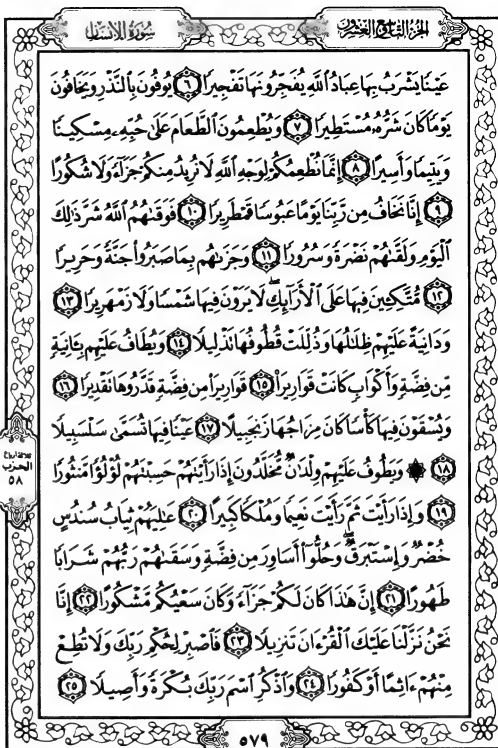 الجزء التاسع والعشرون
سُورَةُ الإنسَان
عَيْنًا يَشْرَبُ بِهَا عِبَادُ ٱللَّهِ يُفَجِّرُونَهَا تَفْجِيرًا ٦ يُوفُونَ بِٱلنَّذْرِ وَيَخَافُونَ
يَوْمًا كَانَ شَرُّهُۥ مُسْتَطِيرًا ٧ وَيُطْعِمُونَ ٱلطَّعَامَ عَلَىٰ حُبِّهِۦ مِسْكِينًا
وَيَتِيمًا وَأَسِيرًا ٨ إِنَّمَا نُطْعِمُكُمْ لِوَجْهِ ٱللَّهِ لَا نُرِيدُ مِنكُمْ جَزَآءً وَلَا شُكُورًا
٩ إِنَّا نَخَافُ مِن رَّبِّنَا يَوْمًا عَبُوسًا قَمْطَرِيرًا ١٠ فَوَقَىٰهُمُ ٱللَّهُ شَرَّ ذَٰلِكَ
ٱلْيَوْمِ وَلَقَّىٰهُمْ نَضْرَةً وَسُرُورًا ١١ وَجَزَىٰهُم بِمَا صَبَرُوا۟ جَنَّةً وَحَرِيرًا
١٢ مُّتَّكِـِٔينَ فِيهَا عَلَى ٱلْأَرَآئِكِ ۖ لَا يَرَوْنَ فِيهَا شَمْسًا وَلَا زَمْهَرِيرًا ١٣
وَدَانِيَةً عَلَيْهِمْ ظِلَٰلُهَا وَذُلِّلَتْ قُطُوفُهَا تَذْلِيلًا ١٤ وَيُطَافُ عَلَيْهِم بِـَٔانِيَةٍ
مِّن فِضَّةٍ وَأَكْوَابٍ كَانَتْ قَوَارِيرَا۠ ١٥ قَوَارِيرَا۟ مِن فِضَّةٍ قَدَّرُوهَا تَقْدِيرًا ١٦
وَيُسْقَوْنَ فِيهَا كَأْسًا كَانَ مِزَاجُهَا زَنجَبِيلًا ١٧ عَيْنًا فِيهَا تُسَمَّىٰ سَلْسَبِيلًا
١٨ ۞ وَيَطُوفُ عَلَيْهِمْ وِلْدَٰنٌ مُّخَلَّدُونَ إِذَا رَأَيْتَهُمْ حَسِبْتَهُمْ لُؤْلُؤًا مَّنثُورًا
١٩ وَإِذَا رَأَيْتَ ثَمَّ رَأَيْتَ نَعِيمًا وَمُلْكًا كَبِيرًا ٢٠ عَٰلِيَهُمْ ثِيَابُ سُندُسٍ
خُضْرٌ وَإِسْتَبْرَقٌ ۖ وَحُلُّوٓا۟ أَسَاوِرَ مِن فِضَّةٍ وَسَقَىٰهُمْ رَبُّهُمْ شَرَابًا
طَهُورًا ٢١ إِنَّ هَٰذَا كَانَ لَكُمْ جَزَآءً وَكَانَ سَعْيُكُم مَّشْكُورًا ٢٢ إِنَّا
نَحْنُ نَزَّلْنَا عَلَيْكَ ٱلْقُرْءَانَ تَنزِيلًا ٢٣ فَٱصْبِرْ لِحُكْمِ رَبِّكَ وَلَا تُطِعْ
مِنْهُمْ ءَاثِمًا أَوْ كَفُورًا ٢٤ وَٱذْكُرِ ٱسْمَ رَبِّكَ بُكْرَةً وَأَصِيلًا ٢٥
ثلاثة أرباع
الحزب
٥٨
٥٧٩